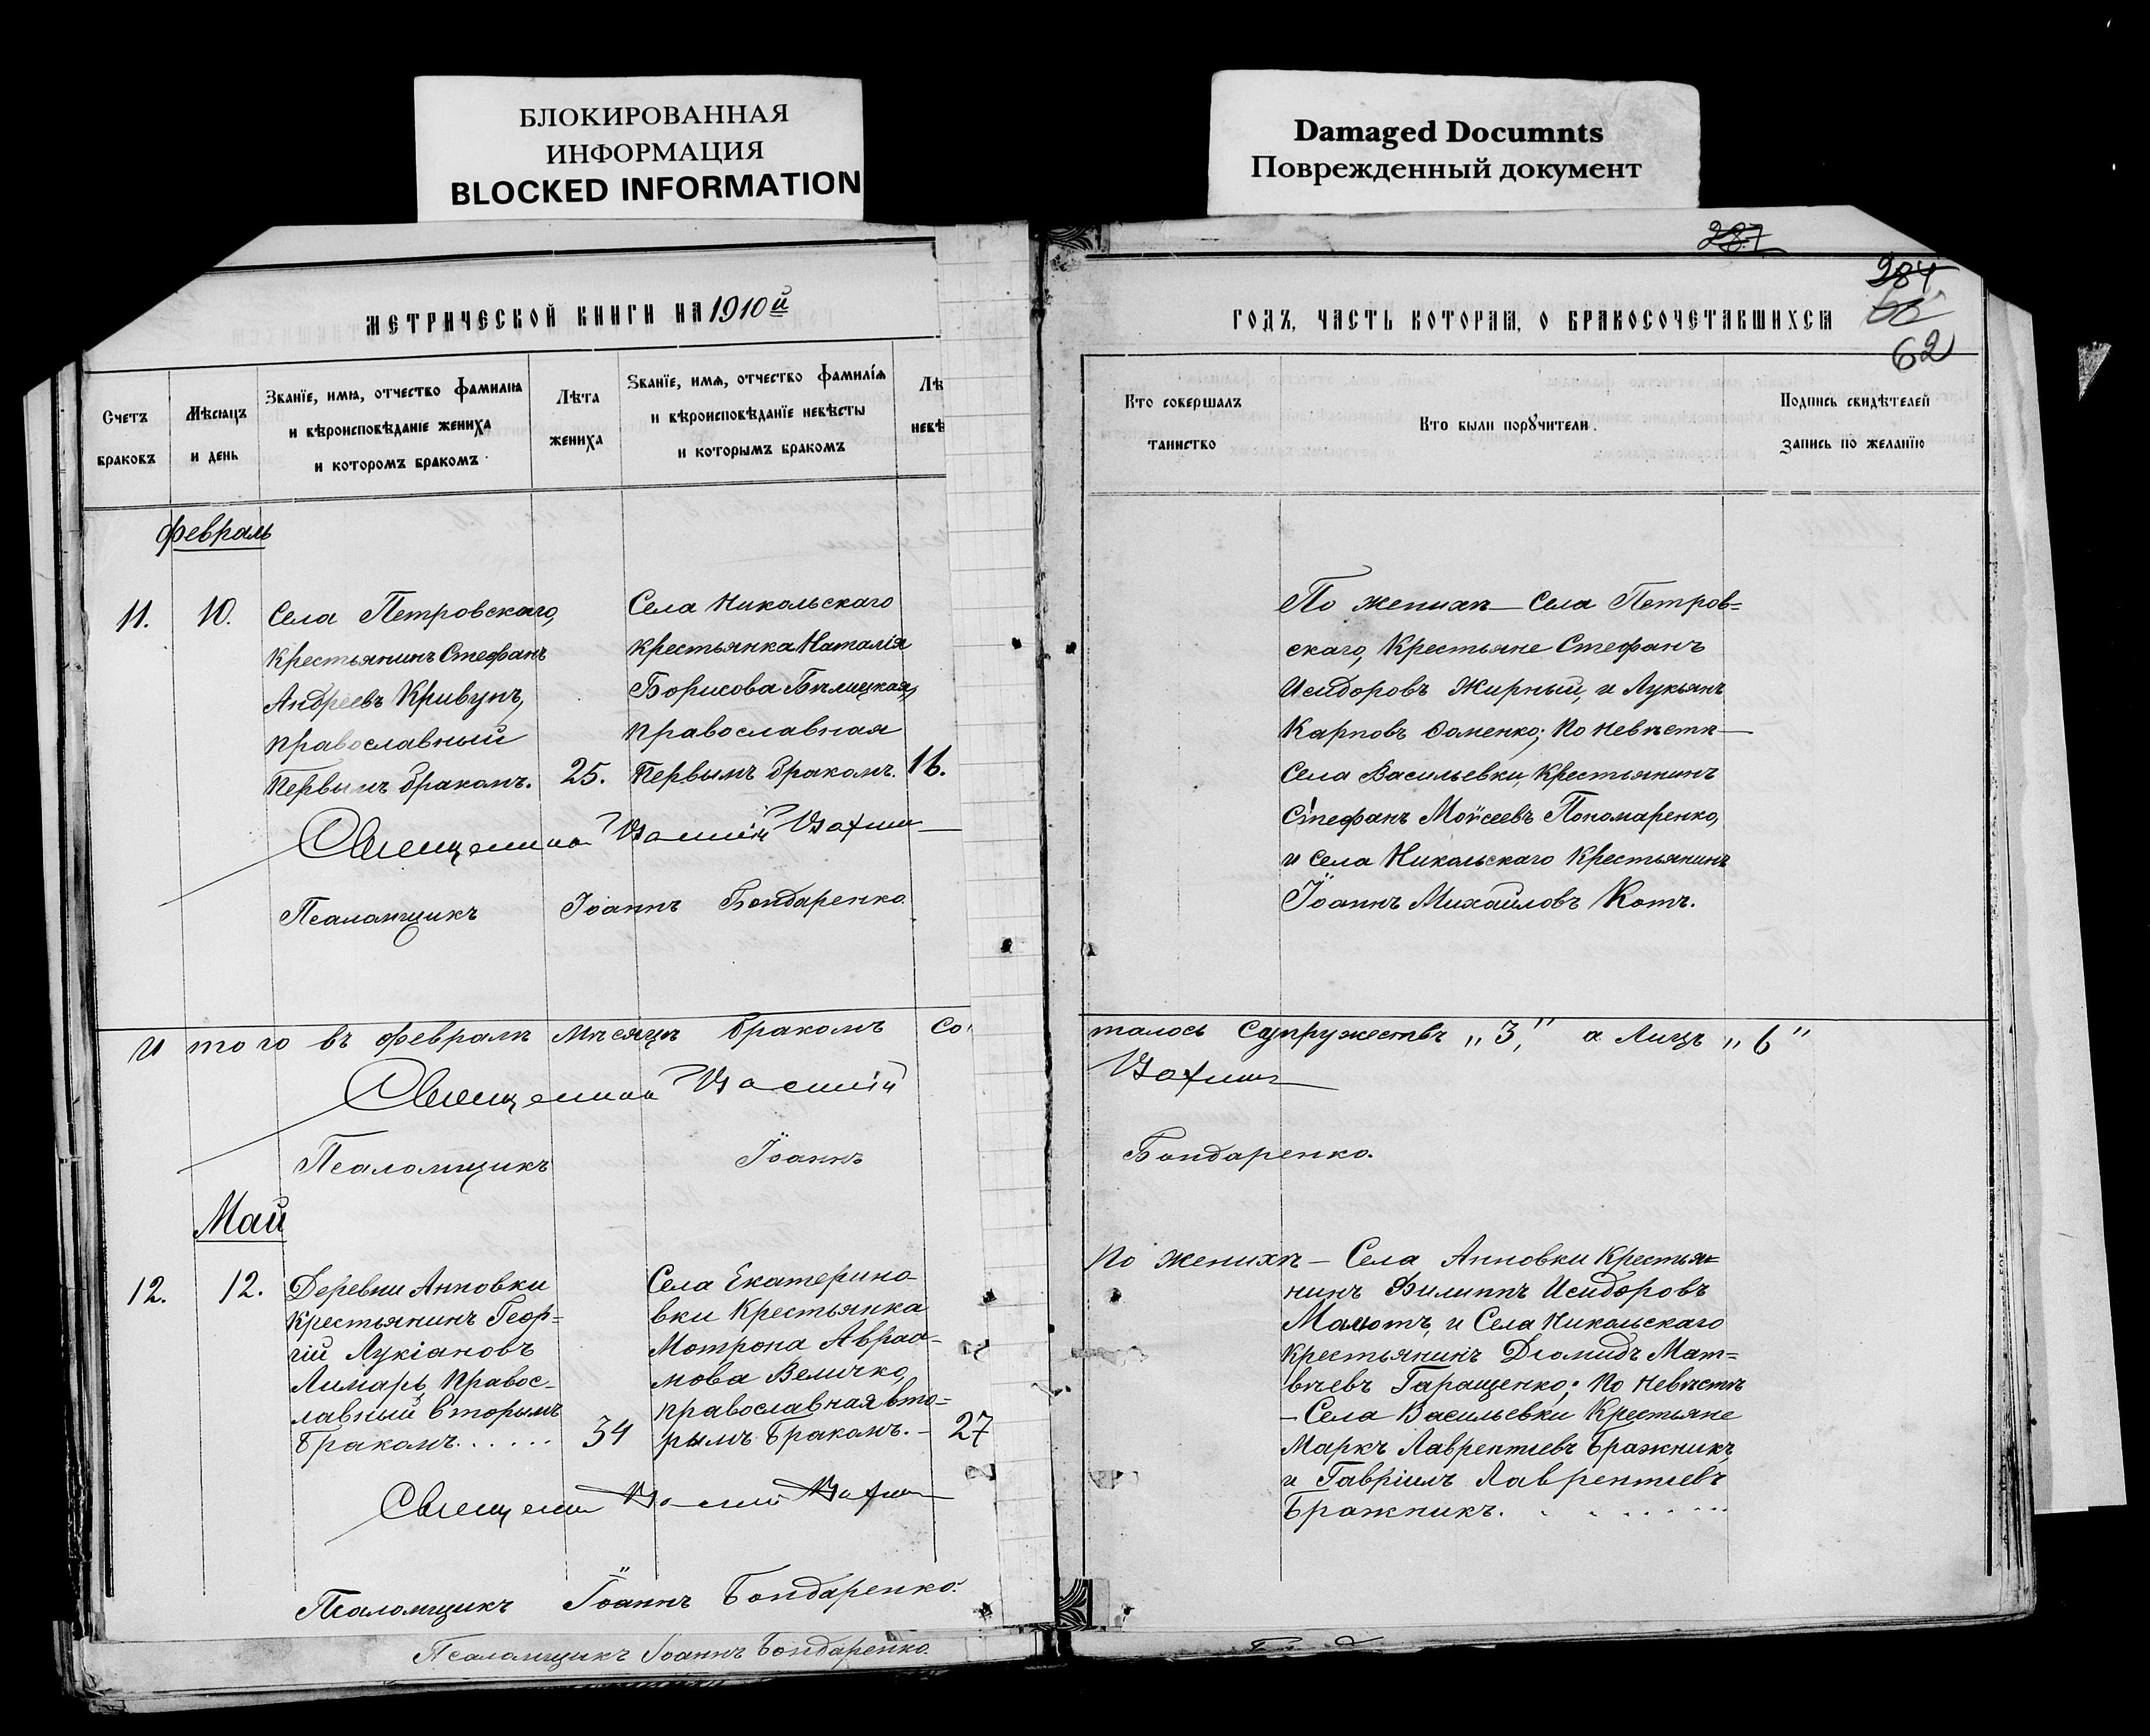 БЛОКИРОВАННАЯ
ИНФОРМАЦИЯ
BLOCKED INFORMATION
Damaged Documnts
Поврежденный документ
287
284
62
МЕТРИЧЕСКОЙ КНИГИ НА 1910й
Счетъ
браковъ
Мѣсяцъ
и день
Званїе, имя, отчество фамилїя
и вѣроисповѣданїе жениха
и которомъ бракомъ
Лѣта
жениха
Званїе, имя, отчество фамилїя
и вѣроисповѣданїе невѣсты
и которымъ бракомъ
Лѣ
невѣ
Февраль
11.
10.
Села Петровскаго,
Крестьянинъ Стефанъ
Андреевъ Кривунъ,
православный
Первымъ бракомъ.
25.
Села Никольскаго
крестьянка Наталія
Борисова Бѣлицкая,
православная
Первымъ бракомъ.
16.
Священникъ Василій
Псаломщикъ Іоаннъ Бондаренко.
Итого въ февралѣ мѣсяцѣ бракомъ со
Священникъ Василій
Псаломщикъ Іоаннъ
Май
12.
12.
Деревни Анновки
Крестьянинъ Геор=
гій Лукіановъ
Лимарь, Правос-
лавный вторымъ
Бракомъ......
34
Села Екатерино-
вки Крестьянка
Мотрона Авраа-
мова Величко,
православная вто=
рымъ Бракомъ.-
27
Псаломщикъ Іоаннъ Бондаренко.
Псаломщикъ Іоаннъ Бондаренко.
ГОДЪ, ЧАСТЬ КОТОРАЯ, О БРАКОСОЧЕТАВШИХСЯ
Кто совершалъ
таинство
Кто были поручители.
Подпись свидѣтелей
запись по желанїю
По женихѣ — Села Петров=
скаго, Крестьяне Стефанъ
Исидоровъ Жирный, и Лукьянъ
Карповъ Фоменко; По невѣстѣ —
Села Васильевки, Крестьянинъ
Стефанъ Моѵсеевъ Пономаренко,
и села Никольскаго Крестьянинъ
Іоаннъ Михаиловъ Котъ.
талось Супружествъ „3," а Лицъ „6"
Бондаренко.
По женихѣ — Села Анновки Крестья=
нинъ Филиппъ Исидоровъ
и Села Никольскаго
Крестьянинъ Діомидъ Мат=
вѣевъ Гаращенко; По невѣстѣ
— Села Васильевки Крестьяне
Маркъ Лаврентіевъ Бражникъ,
и Гавріилъ Лаврентіевъ
Бражникъ.